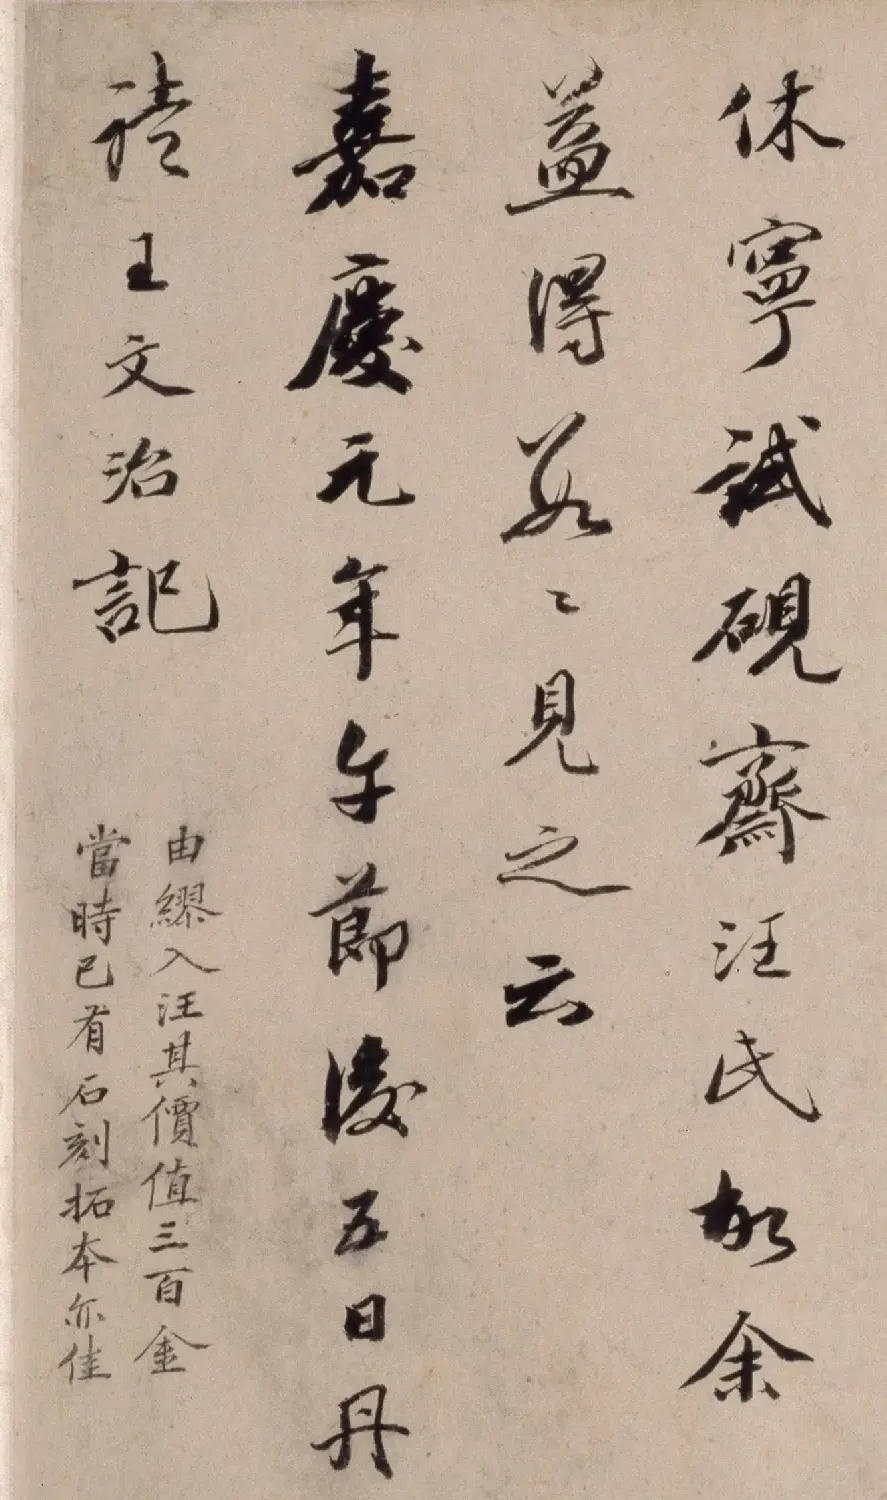 休寧試硯齋汪氏故余
益得數〻見之云
嘉慶元年午節後五日丹
徒王文治記
由繆入汪其價值三百金
當時已有石刻拓本亦佳